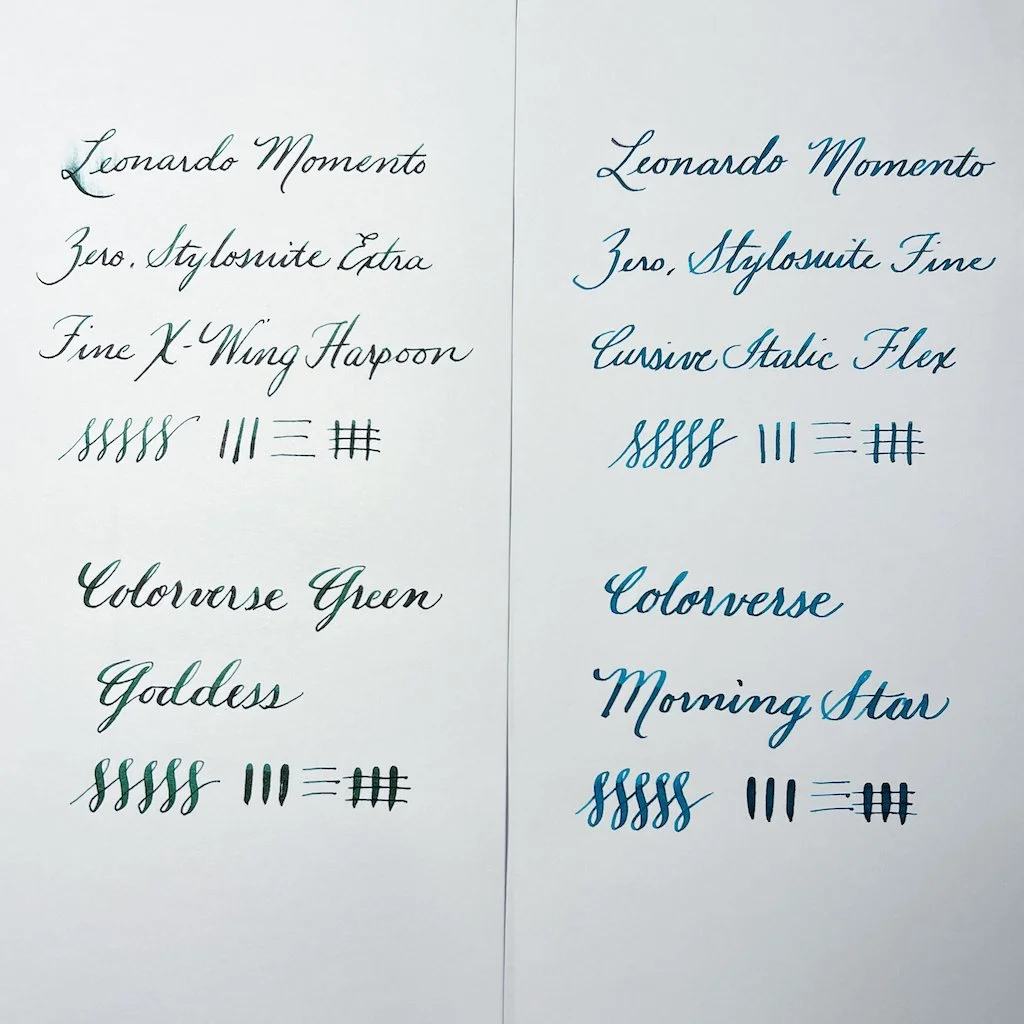 Leonardo Momento
Zero, Stylosuite Extra
Fine X-Wing Harpoon
Colorverse Green
Goddess
Leonardo Momento
Zero, Stylosuite Fine
Cursive Italic Flex
Colorverse
Morning Star